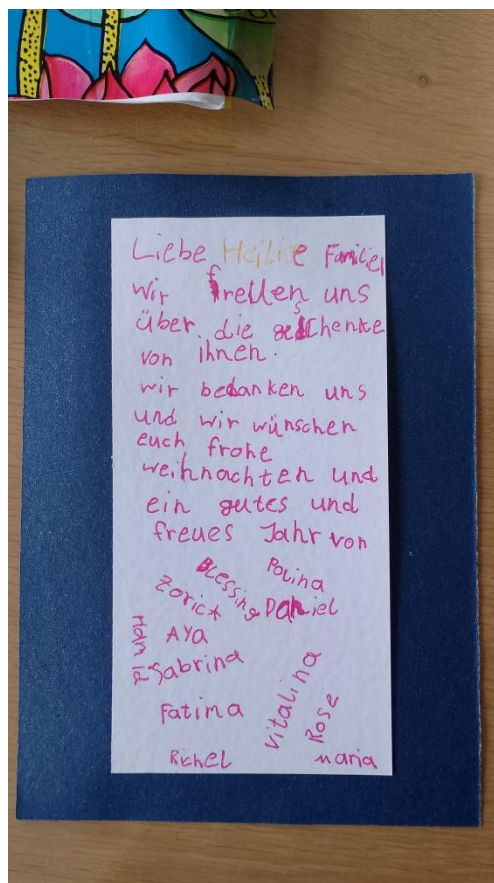 Liebe Heilige Familiel
wir frellen uns
über die geschenke
von ihnen.
wir bedanken uns
und wir wünschen
euch frohe
weihnachten und
ein gutes und
freues Jahr von
Polina
Blessing
Zorict
Daniel
AYa
Sabrina
Fatima
Vitalina
Rose
Richel
maria